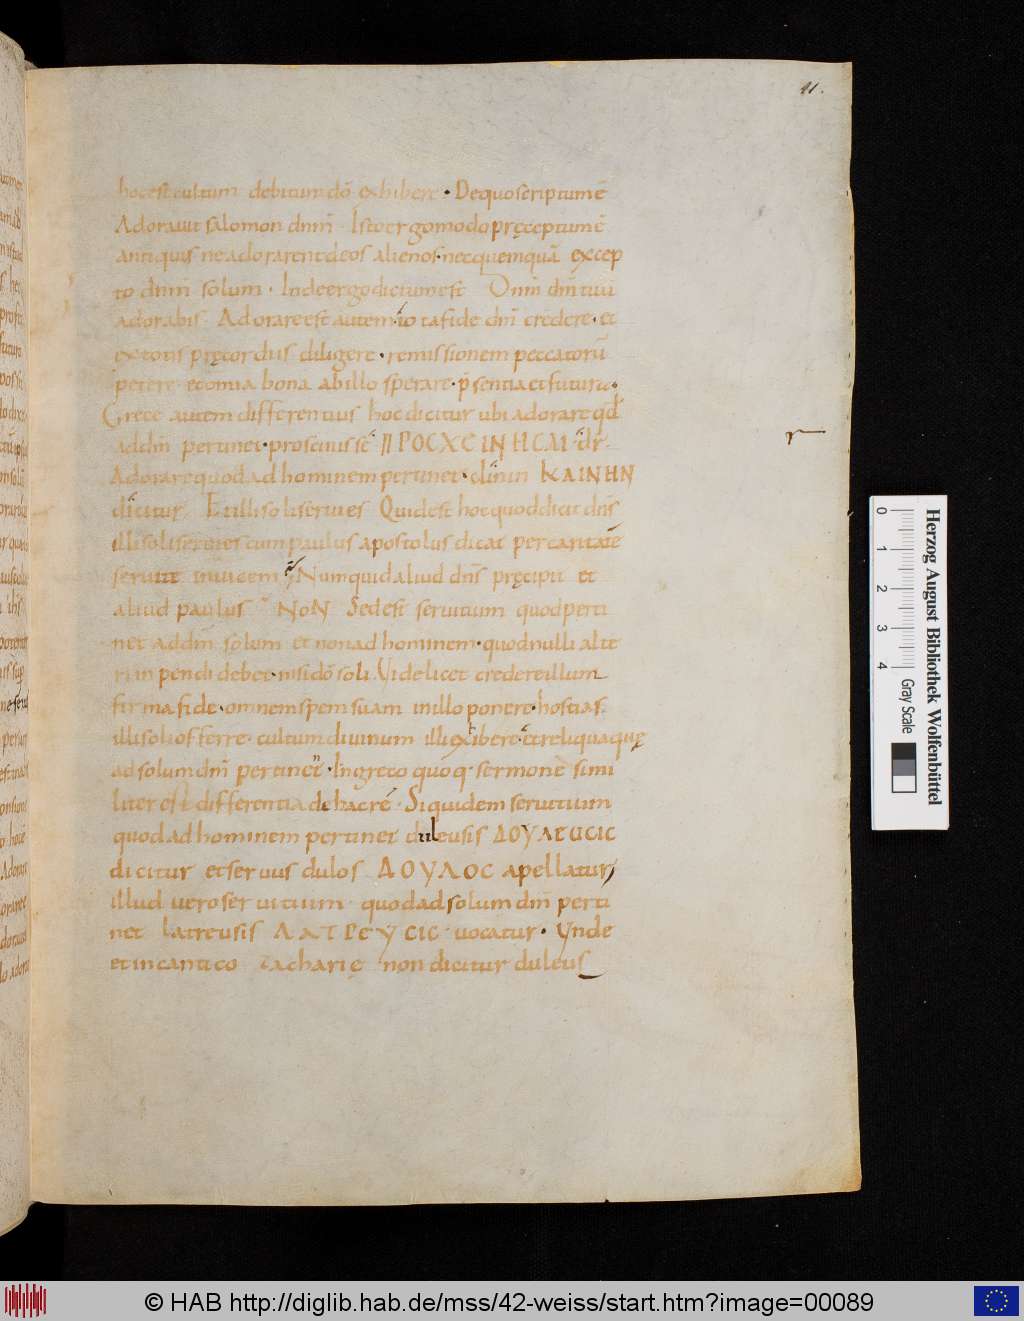 41.
hoc est cultum debitum dō exhibere · De quo scriptum ē
Adoravit salomon dnm̄ · Isto ergo modo pręceptum ē
antiquis ne adorarent deos alienos · nec quemquā excep
to dnm̄ solum · Inde ergo dictum est Dnm̄ dm̄ tuū
adorabis · Adorare est autem tota fide dm̄ credere · et
ex totis pręcordiis diligere · remissionem peccatorū
petere · et omnia bona ab illo sperare · p̄sentia et futura ·
Grece autem differentius hoc dicitur ubi adorare qđ
ad dm̄ pertinet · ΠΡΟCΧCΙΝΗCΑΙ · dr̄
Adorare quod ad hominem pertinet · ΚΑΙΝΗΝ
dicitur · Et illi soli servies Quid est hoc quod dicit dn̄s
illi soli servies cum paulus apostolus dicat per caritatē
servite invicem Numquid aliud dn̄s pręcipit et
aliud paulus NoN Sed est servitium quod perti
net ad dm̄ solum et non ad hominem · quod nulli alte
ri inpendi debet · nisi dō soli · Videlicet credere illum
firma fide · omnem spem suam in illo ponere · hostias
illi soli offerre · cultum divinum illi exhibere · et reliqua quę
ad solum dm̄ pertinet · In greco quoq· sermone simi
liter est differentia de hac re · Siquidem servitium
quod ad hominem pertinet duleusis ΔΟΥΛΕUCΙC
dicitur et servus dulos ΔΟΥΛΟC apellatur
illud vero servitium · quod ad solum dm̄ perti
net latreusis ΛΑΤΡΕΥCΙC · vocatur · Vnde
et in cantico zacharię non dicitur duleus
0 1 2 3 4
Gray Scale
Herzog August Bibliothek Wolfenbüttel
© HAB http://diglib.hab.de/mss/42-weiss/start.htm?image=00089